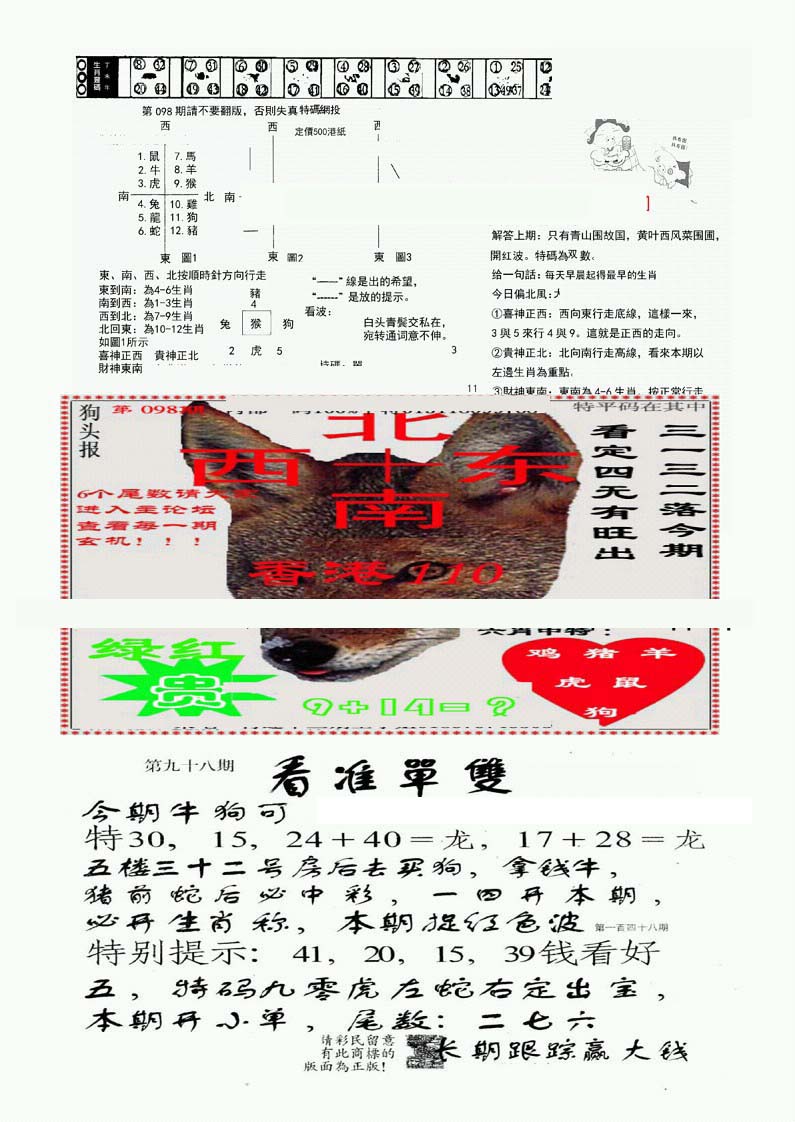 丁未年
生肖靈碼
⑧ 32 ⑦ 31 ⑥ 30 ⑤ 29 ④ 28 ③ 27 ② 26 ① 25 12
20 44 19 43 18 42 17 41 16 40 15 39 14 38 13 49 37 24
第098期請不要翻版，否則失真特碼網投
西 西 西
定價500港紙
1.鼠 7.馬
2.牛 8.羊
3.虎 9.猴
南 北 南
4.兔 10.雞
5.龍 11.狗
6.蛇 12.豬
東 圖1 東 圖2 東 圖3
東、南、西、北按順時針方向行走
東到南：為4-6生肖
南到西：為1-3生肖
西到北：為7-9生肖
北回東：為10-12生肖
如圖1所示
喜神正西 貴神正北
財神東南
豬
4
兔 猴 狗
2 虎 5
“——”線是出的希望，
“------”是放的提示。
看波：
白头青鬓交私在，
宛转通词意不伸。
3
11
解答上期：只有青山围故国，黄叶西风菜围圃，
開红波。特碼為双數。
给一句話：每天早晨起得最早的生肖
今日偏北風：
①喜神正西：西向東行走底線，這樣一來，
3與5來行4與9。這就是正西的走向。
②貴神正北：北向南行走高線，看來本期以
左邊生肖為重點.
③財神東南：東南為4-6生肖，按正常行走
狗头报
第 098期
特平码在其中
三一三二落今期
看定四元有旺出
北
西十东
南
6个尾数请大家
进入主论坛
查看每一期
玄机！！！
香港110
绿红
贵
9+14=？
鸡 猪 羊
虎 鼠
狗
第九十八期
看准單雙
今期牛狗可
特30，15，24＋40＝龙，17＋28＝龙
五楼三十二号房后去买狗，拿钱牛，
猪前蛇后必中彩，一四开本期，
必开生肖称，本期捉红色波
第一百四十八期
特别提示：41，20，15，39钱看好
五，特码九零虎左蛇右定出宝，
本期开小单，尾数：二七六
请彩民留意
有此商標的
版面為正版！
长期跟踪赢大钱